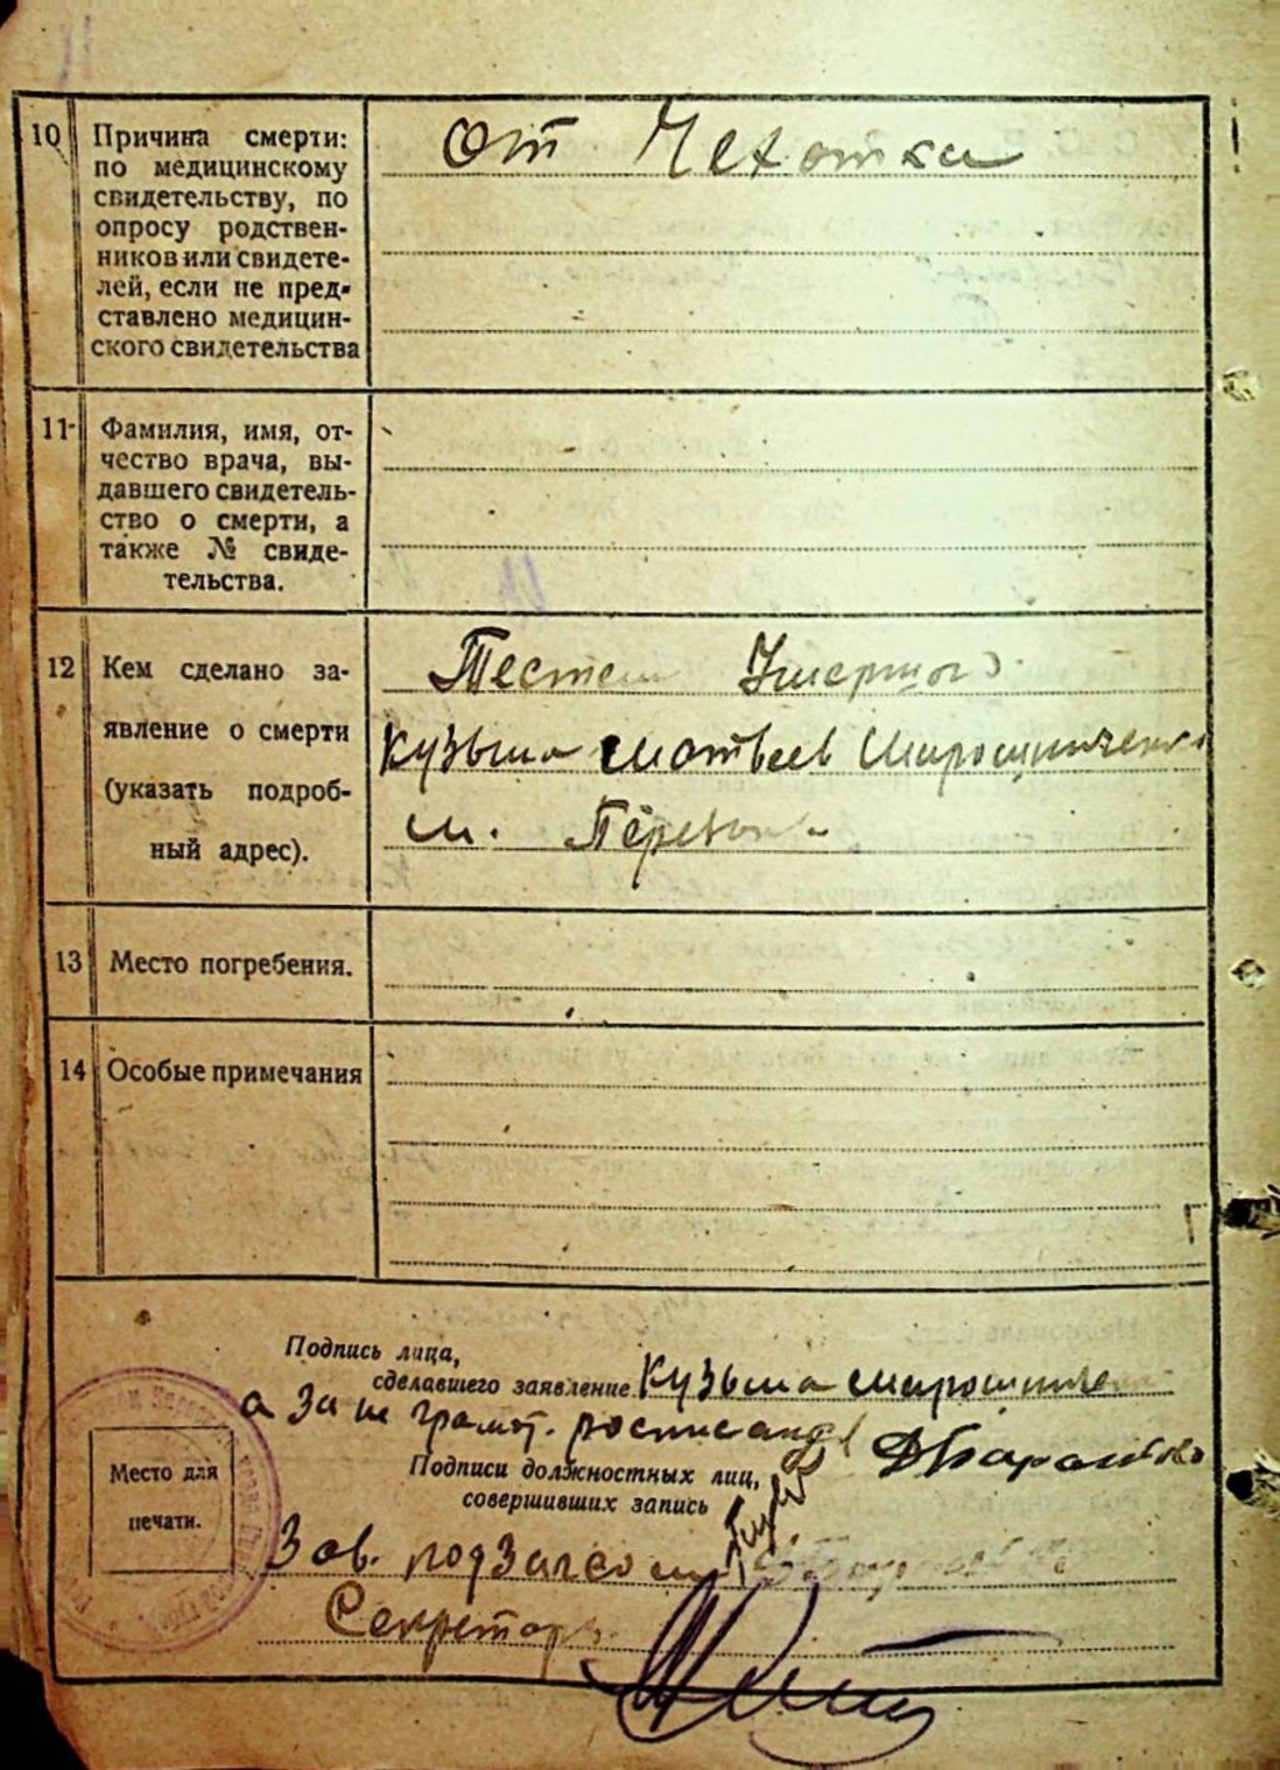 10
Причина смерти:
по медицинскому
свидетельству, по
опросу родствен-
ников или свидете-
лей, если не пред-
ставлено медицин-
ского свидетельства
От Чехотки
11
Фамилия, имя, от-
чество врача, вы-
давшего свидетель-
ство о смерти, а
также № свиде-
тельства.
12
Кем сделано за-
явление о смерти
(указать подроб-
ный адрес).
Тестем Умершого
Кузьма Матвеев Мирошниченко
м.
13
Место погребения.
14
Особые примечания
Подпись лица,
сделавшего заявление Кузьма Мирошниченко
а за не грамот. росписался
Подписи должностных лиц,
совершивших запись
Место для
печати.
Зав. подзагсом
Секретарь